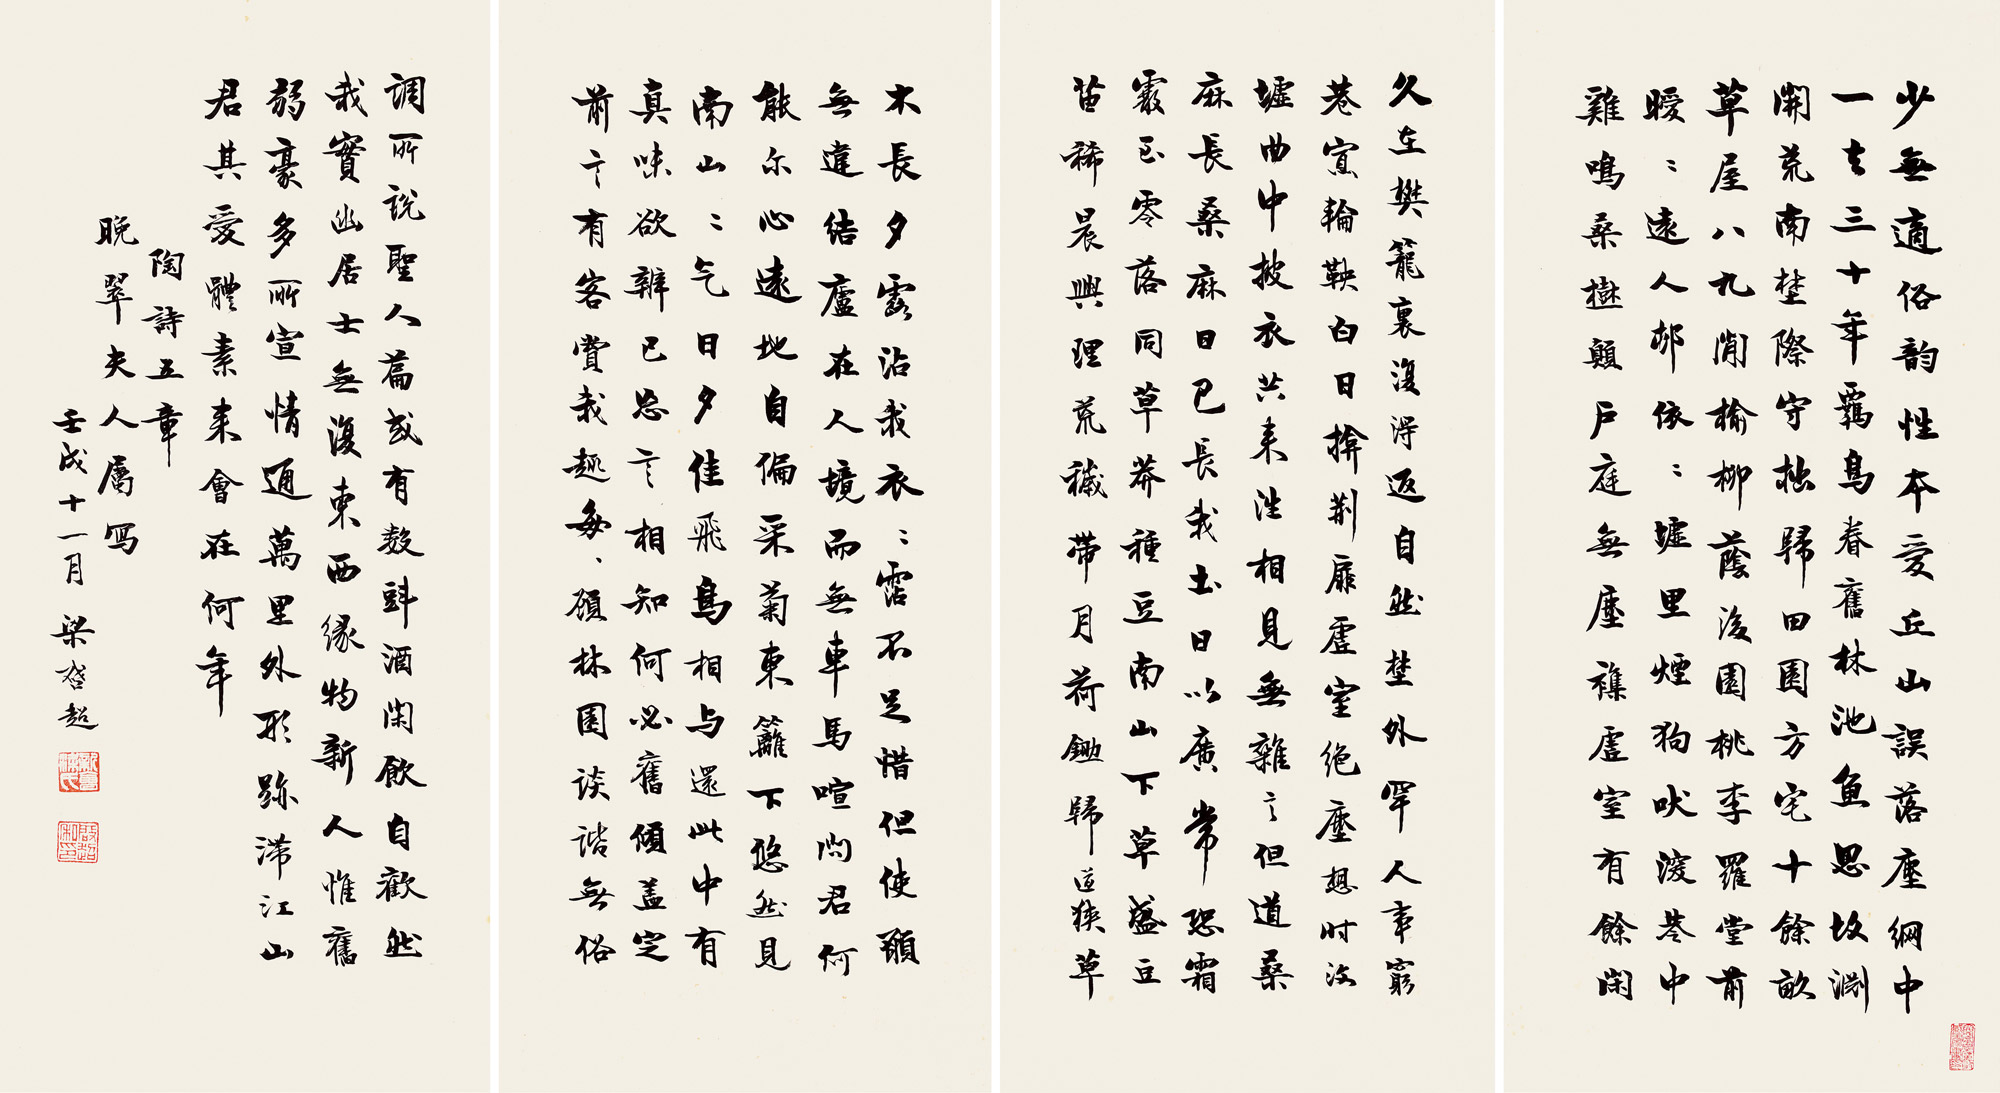 少無適俗韵性本愛丘山誤落塵網中
一去三十年羈鳥眷舊林池魚思故淵
開荒南埜際守拙歸田園方宅十餘畝
草屋八九閒榆柳蔭後園桃李羅堂前
曖〻遠人邨依〻墟里煙狗吠深巷中
雞鳴桑樹顛戶庭無塵雜虛室有餘閑
久在樊籠裏復得返自然埜外罕人事窮
巷寡輪鞅白日揜荆扉虛室絕塵想时汝
墟曲中披衣共来往相見無雜言但道桑
麻長桑麻日已長我土日以廣常恐霜
霰至零落同草莽種豆南山下草盛豆
苗稀晨興理荒穢帶月荷鋤歸道狹草
木長夕露沾我衣〻霑不足惜但使願
無違結廬在人境而無車馬喧问君何
能尔心遠地自偏采菊東籬下悠然見
南山〻气日夕佳飛鳥相与還此中有
真味欲辨已忘言相知何必舊傾盖定
前言有客賞我趣每〻顧林園谈谐無俗
調所說聖人篇或有數斟酒閑飲自歡然
我實幽居士無復東西緣物新人惟舊
弱豪多所宣情通萬里外形跡滞江山
君其愛體素来會在何年
陶詩五章
晚翠夫人屬寫
壬戌十一月 梁啓超
新會梁氏
啟超和印